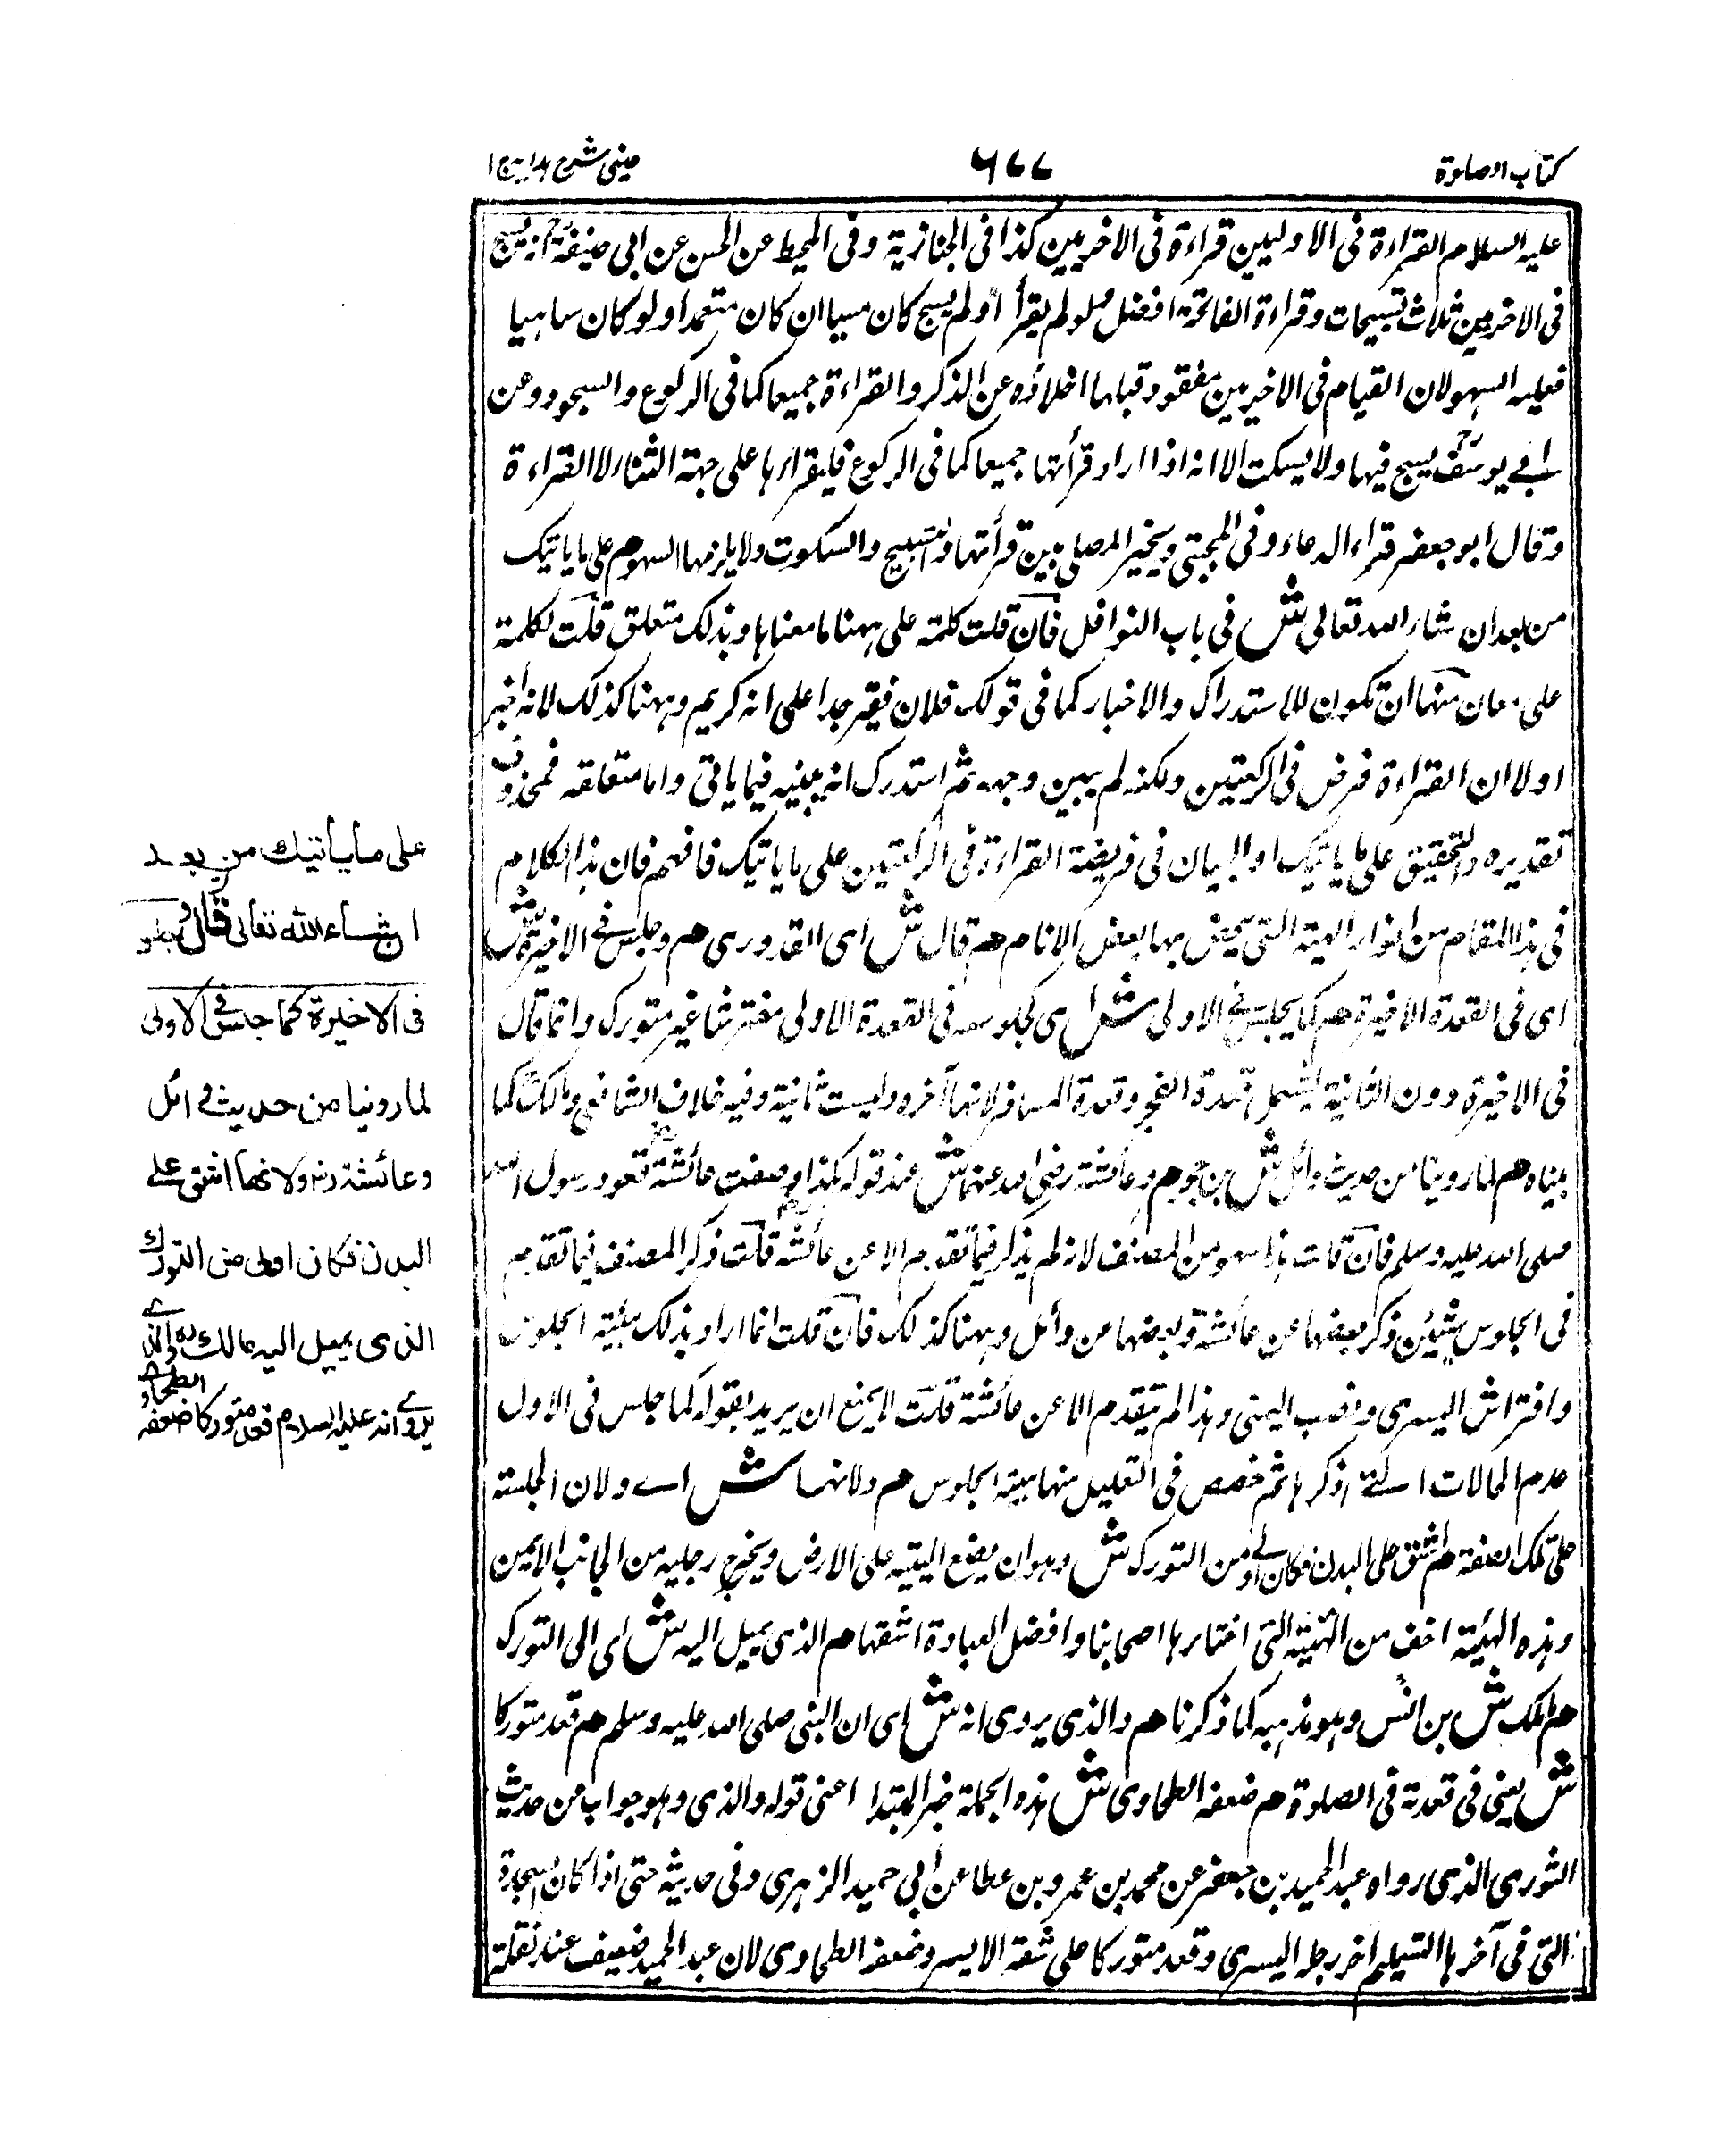 كتاب الصلوة
٦٧٧
عينى شرح هداية ج ١
عليه السلام القراءة فى الاوليين قراءة فى الاخريين كذا فى الجنازية وفى المحيط عن الحسن عن ابى حنيفةرح انه يسبح
فى الاخريين ثلاث تسبيحات وقراءة الفاتحة افضل ولو لم يقرأ او لم يسبح كان مسيا ان كان متعمدا ولو كان ساهيا
فعليه السهو لان القيام فى الاخيريين مقصود قبالها اخلاؤه عن الذكر والقراءة جميعا كما فى الركوع والسجود وعن
ابى يوسفرح يسبح فيها ولا يسكت الا انه اذا اراد قرأتها جميعا كما فى الركوع فليقراء ها على جهة الثناء لا القراءة
وقال ابو جعفر قراء الدعاء وفى المجتبى ويخير المصلى بين قرأتها والتسبيح والسكوت ولا يلزمها السهو هم على ما ياتيك
من بعد ان شاء الله تعالى ش فى باب النوافل فان قلت كلمته على ههنا ما معناها وبذلك متعلق قلت لكلمة
على معان منها ان تكون للاستدراك والاخبار كما فى قولك فلان فقير جدا على انه كريم وههنا كذلك لانه اخبر
اولا ان القراءة فرض فى الركعتين ولكنه لم يبين وجهه ثم استدرك انه يبينه فيما ياتى واما متعلقه فمحذوف
تقديره والتحقيق على ما ياتيك او البيان فى فريضة القراءة فى الركعتين على ما ياتيك فافهم فان هذا الكلام
فى هذا المقام من انوار الهية التى يختص بها بعض الانام هم قال ش اى القدورى هم وجلس فى الاخيرة ش
اى فى القعدة الاخيرة هم كما يجلس فى الاولى ش اى كجلوسه فى القعدة الاولى مفترشا غير متورك وانما قال
فى الاخيرة دون الثانية ليشمل قعدة الفجر وقعدة المسافر لانها آخره وليست ثانية وفيه خلاف الشافعى ومالك كما
بيناه هم لما روينا من حديث وائل ش بن حجر هم وعائشة رضى الله عنها ش عند قوله هكذا وصفت عائشة قعود رسول الله
صلى الله عليه وسلم فان قلت هذا سهو من المصنف لانه لم يذكر فيما تقدم الا عن عائشة قلت ذكر المصنف فيما تقدم
فى الجلوس شيئين ذكر بعضها عن عائشة وبعضها عن وائل وههنا كذلك فان قلت انما اراد بذلك هيئة الجلوس
وافتراش اليسرى ونصب اليمنى وهذا لم يتقدم الا عن عائشة قلت لا يمنع ان يريد بقوله كما جلس فى الاول
عدم الحالات التى ذكرها ثم خصص فى التعليل منها هيئة الجلوس هم ولانها ش اے ولان الجلسة
على تلك الصفة هم اشق على البدن فكان اولى من التورك ش وهو ان يضع اليتيه على الارض ويخرج رجليه من الجانب الايمن
وهذه الهيئة اخف من الهيئة التى اختارها اصحابنا وافضل العبادة اشقها هم الذى يميل اليه ش اى الى التورك
هم مالك ش بن انس وهو مذهبه كما ذكرنا هم والذى يروى انه ش اى ان النبى صلى الله عليه وسلم هم قعد متوركا
ش يعنى فى قعدته فى الصلوة هم ضعفه الطحاوى ش هذه الجملة خبر المبتدا اعنى قوله والذى وهو جواب عن حديث
الثورى الذى رواه عبد الحميد بن جعفر عن محمد بن عمرو بن عطا عن ابى حميد الزهرى وفى حديثه حتى اذا كان السجدة
التى فى آخرها التسليم اخر رجله اليسرى وقعد متوركا على شقه الايسر وضعفه الطحاوى لان عبد الحميد ضعيف عند نقلة
على ما يأتيك من بعد
ان شاء الله تعالى قال وجلس
فى الاخيرة كما جلس فى الاولى
لما روينا من حديث وائل
وعائشة رض ولانها اشق على
البدن فكان اولى من التورك
الذى يميل اليه مالك رح والذى
يروى انه عليه السلام قعد متوركا ضعفه الطحاوى